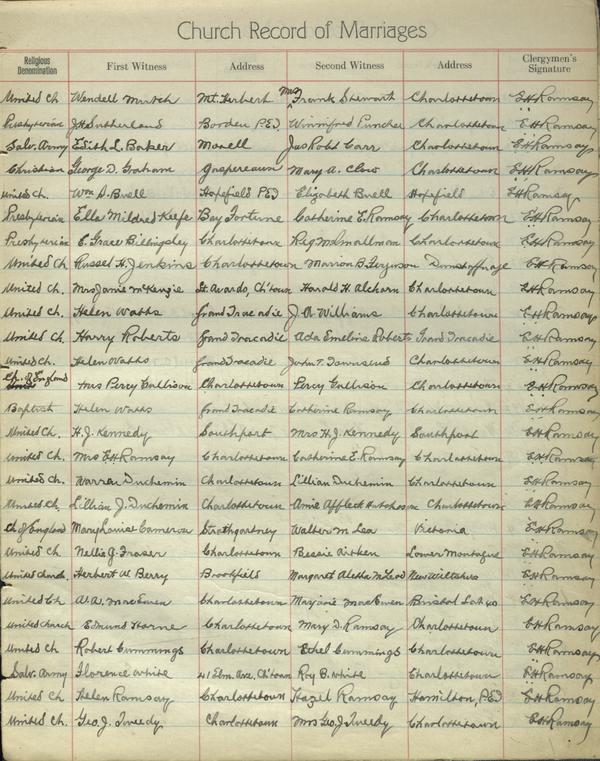 Church Record of Marriages
Religious Denomination First Witness Address Second Witness Address Clergymen's Signature
United Ch Wendell Mutch Mt. Herbert Mrs Frank Stewart Charlottetown E.H. Ramsay
Presbyterian J.H. Sutherland Borden P.E.I. Winnifred Charlottetown E.H. Ramsay
Salv. Army Edith L. Baker Morell Jas Robt Carr Charlottetown E.H. Ramsay
Christian George D. Graham Gaspereaux Mary A. Clow Charlottetown E.H. Ramsay
United Ch. Wm S. Buell Hopefield P.E.I. Elizabeth Buell Hopefield E.H. Ramsay
Presbyterian Ella Mildred Keefe Bay Fortune Catherine E. Ramsay Charlottetown E.H. Ramsay
Presbyterian E. Grace Billingsley Charlottetown Reg Charlottetown E.H. Ramsay
United Ch Russel H. Jenkins Charlottetown Marion B. Ferguson Dunstaffnage E.H. Ramsay
United Ch. Mrs Janie McKenzie St. Avards, Ch'town Harold H. Alchorn Charlottetown E.H. Ramsay
United Ch. Helen Watts Grand Tracadie J.A. Williams Charlottetown E.H. Ramsay
United Ch. Harry Roberts Grand Tracadie Ada Emeline Roberts Grand Tracadie E.H. Ramsay
United Ch. Helen Watts Grand Tracadie John T. Townsend Charlottetown E.H. Ramsay
Ch. of England Mrs Percy Gallison Charlottetown Percy Gallison Charlottetown E.H. Ramsay
Baptist Helen Watts Grand Tracadie Catherine Ramsay Charlottetown E.H. Ramsay
United Ch. H.J. Kennedy Southport Mrs H.J. Kennedy Southport E.H. Ramsay
United Ch. Mrs E.H. Ramsay Charlottetown Catherine E. Ramsay Charlottetown E.H. Ramsay
United Ch. Warren Duchemin Charlottetown Lillian Duchemin Charlottetown E.H. Ramsay
United Ch. Lillian J. Duchemin Charlottetown Amie Affleck Hutcheson Charlottetown E.H. Ramsay
Ch of England Mary Louise Cameron Strathgartney Walter M Lea Victoria E.H. Ramsay
United Ch Nellie J. Fraser Charlottetown Bessie Aitken Lower Montague E.H. Ramsay
United Church. Herbert W. Berry Brookfield Margaret Aletta McLeod New Wiltshire E.H. Ramsay
United Ch A.A. MacEwen Charlottetown Marjorie MacEwen Bristol Lot 40 E.H. Ramsay
United Church Edmund Horne Charlottetown Mary D. Ramsay Charlottetown E.H. Ramsay
United Ch Robert Cummings Charlottetown Ethel Cummings Charlottetown E.H. Ramsay
Salv. Army Florence White 41 Elm. Ave. Ch'town Roy B. White Charlottetown E.H. Ramsay
United Ch Helen Ramsay Charlottetown Hazel Ramsay Hamilton, P.E.I. E.H. Ramsay
United Ch. Geo. J. Tweedy Charlottetown Mrs Geo J Tweedy Charlottetown E.H. Ramsay